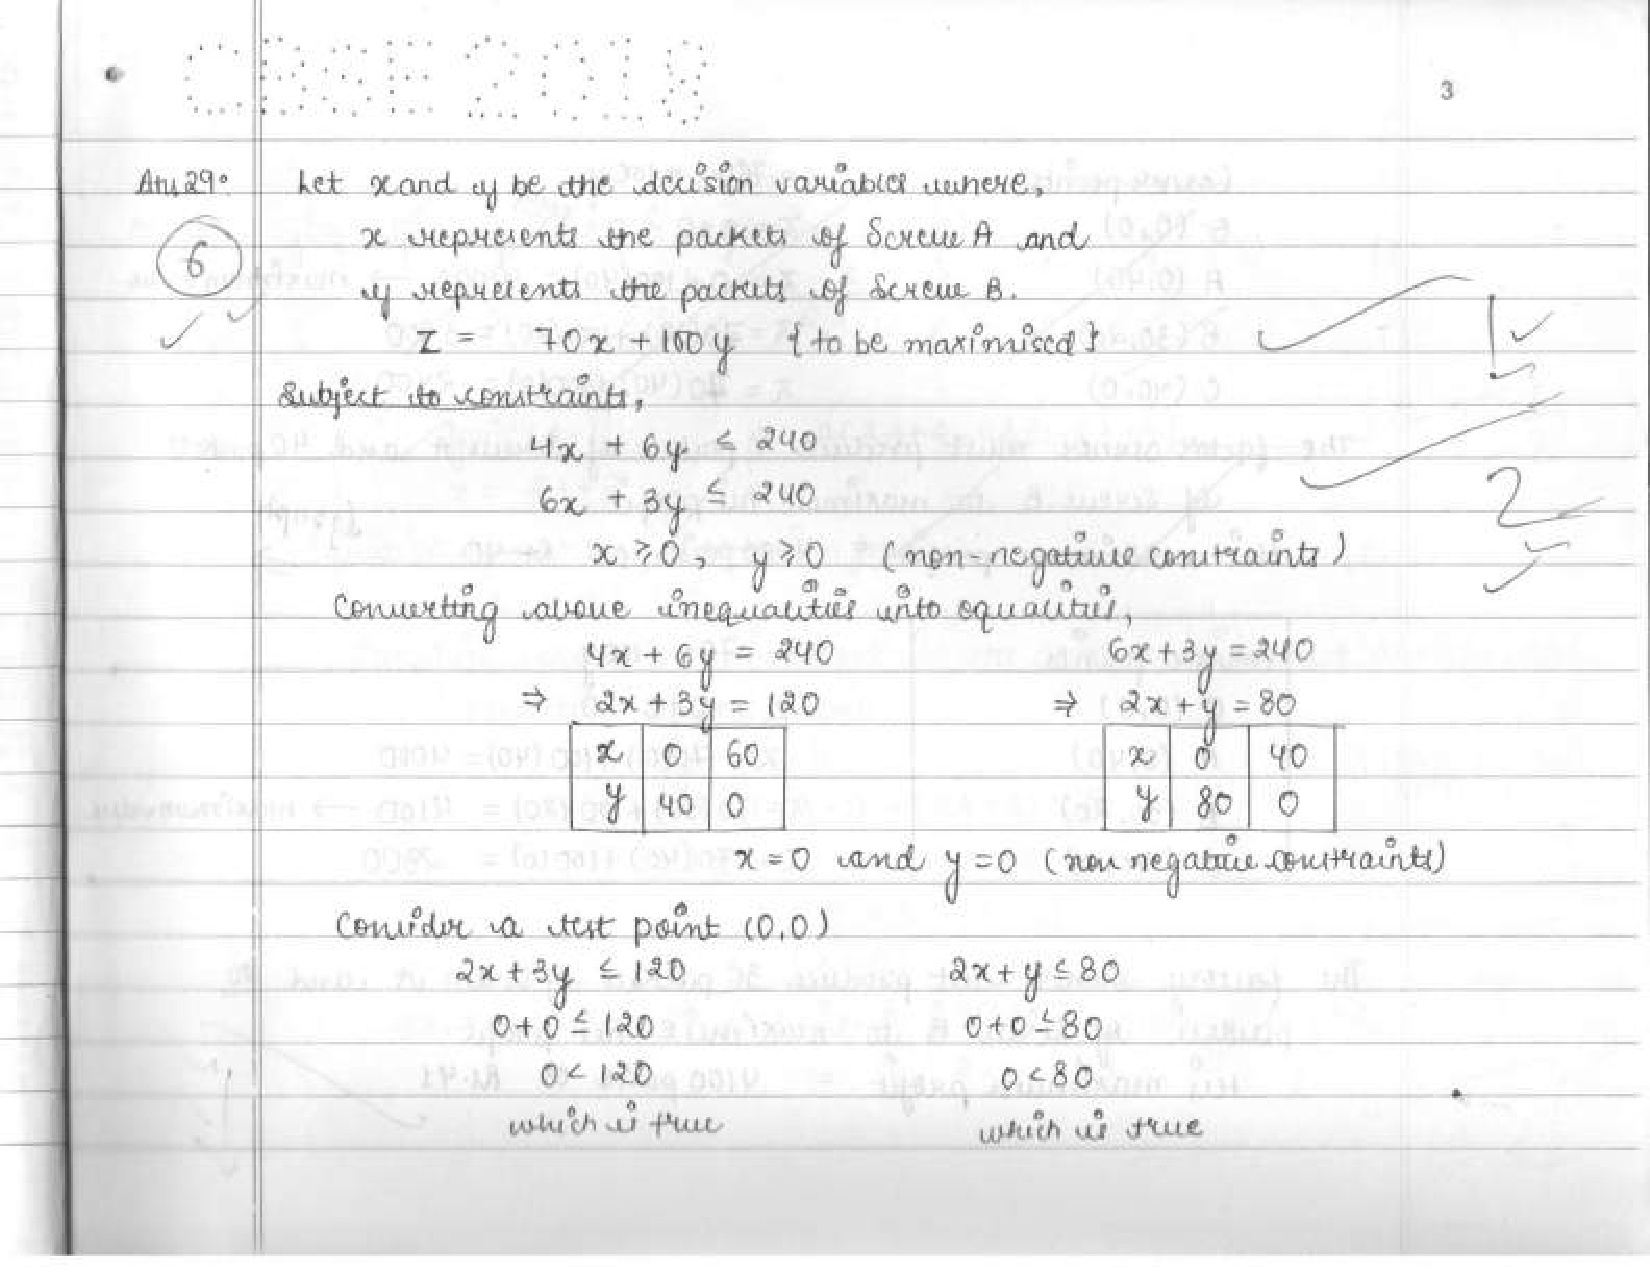 CBSE 2018
3
Ans29. Let x and y be the decision variables where,
6
x represents the packets of Screw A and
y represents the packets of Screw B.
Z = 70x + 100y { to be maximised }
1
Subject to constraints,
4x + 6y ≤ 240
6x + 3y ≤ 240
2
x ≥ 0, y ≥ 0 (non-negative constraints)
Converting above inequalities into equalities,
4x + 6y = 240 6x + 3y = 240
⇒ 2x + 3y = 120 ⇒ 2x + y = 80
x 0 60 x 0 40
y 40 0 y 80 0
x = 0 and y = 0 (non negative constraints)
Consider a test point (0,0)
2x + 3y ≤ 120 2x + y ≤ 80
0 + 0 ≤ 120 0 + 0 ≤ 80
0 < 120 0 < 80
which is true which is true